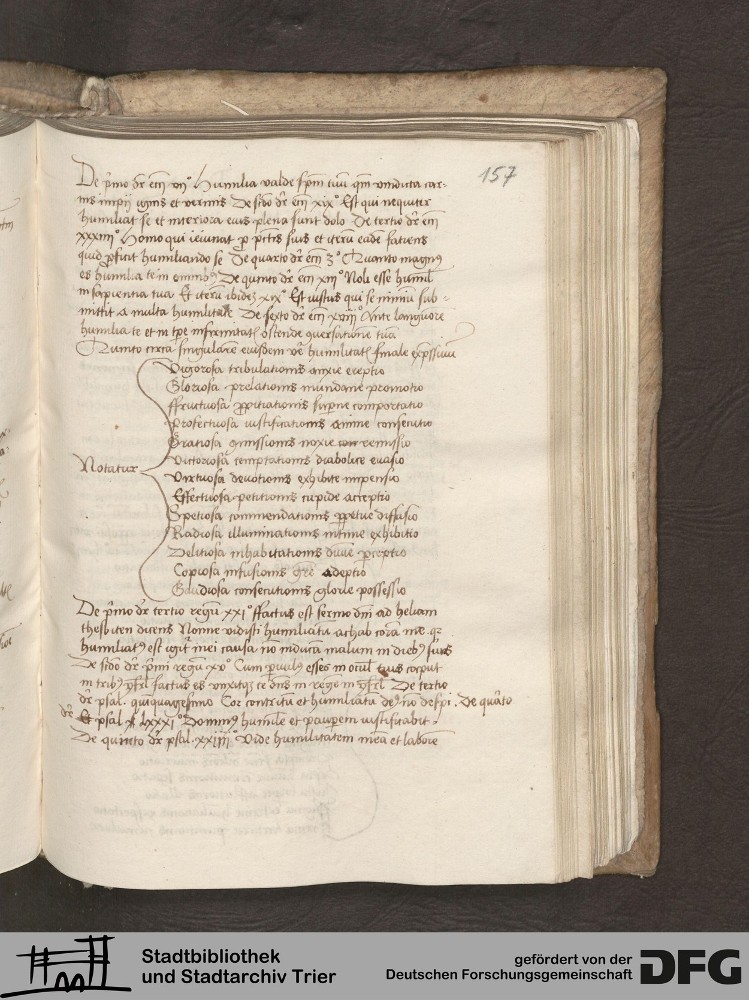 157
De p̄mo dr̄ ecci vij° Humilia valde sp̄m tuū qm̄ vindicta car-
nis impij ignis et vermis De scd̄o dr̄ ecci xix° Est qui nequiter
humiliat se et interiora eius plena sunt dolo De tertio dr̄ ecci
xxxiiij° Homo qui ieiunat ꝓ pctīs suis et iterū eadē faciens
quid ꝓficit humiliando se De quarto dr̄ ecci 3° Quanto magnꝰ
es humilia te in omnibꝫ De quinto dr̄ ecci xiij° Noli esse humil̄
in sapientia tua Et iterū ibidē xix° Est iustus qui se nimiū sub-
mittit a multa humilitate De sexto dr̄ ecci xviij° Ante languorē
humilia te et in tp̄e infirmitatꝭ ostende ꝯuersationē tuā
Quinto circa singularē eiusdem verē humilitatꝭ finale exp̄ssiuū
Vigorosa tribulationis anxie ereptio
Gloriosa prelationis mundane promotio
ffructuosa ꝓpitiationis superne comportatio
Profectuosa iustificationis anime consecutio
Gratiosa ꝯmissionis noxie remissio
Notatur
Victoriosa temptationis diabolice euasio
Virtuosa deuotionis exhibite impensio
Effectuosa petitionis cupide acceptio
Spetiosa commendationis ꝑpetue diffusio
Radiosa illuminationis intime exhibitio
Delitiosa inhabitationis diuine ꝑceptio
Copiosa infusionis grē adeptio
Gaudiosa consecutionis glorie possessio
De p̄mo dr̄ tertio regū xxi° ffactus est sermo dn̄i ad heliam
thesbiten dicens Nonne vidisti humiliatū achab corā me qꝫ
humiliatꝰ est igit̄ mei causa nō inducā malum in diebꝫ suis
De scd̄o dr̄ p̄mi regū xv° Cum ꝑuulꝰ esses in oculꝭ tuis caput
in tribꝫ isrl̄ factus es vnxitqꝫ te dn̄s in regē in isrl̄ De tertio
dr̄ psal. quinquagesimo Cor contritū et humiliatū deꝰ nō despi. De quarto
dr̄ Et psal lxxxi° Dominꝰ humile et pauꝑem iustificabit.
De quinto dr̄ psal. xxiiij° Vide humilitatem meā et laborē
Stadtbibliothek
und Stadtarchiv Trier
gefördert von der
Deutschen Forschungsgemeinschaft
DFG